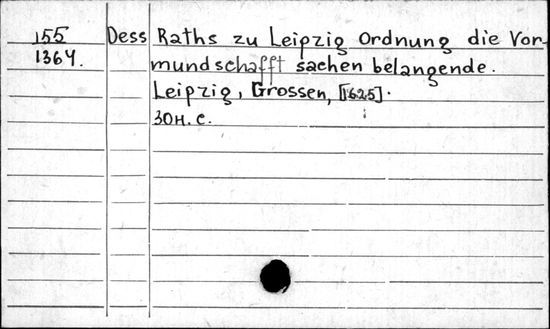 155 Dess Raths zu Leipzig Ordnung die Vor-
1364. mundschafft sachen belangende.
Leipzig, Grossen, [1625].
30н. с.